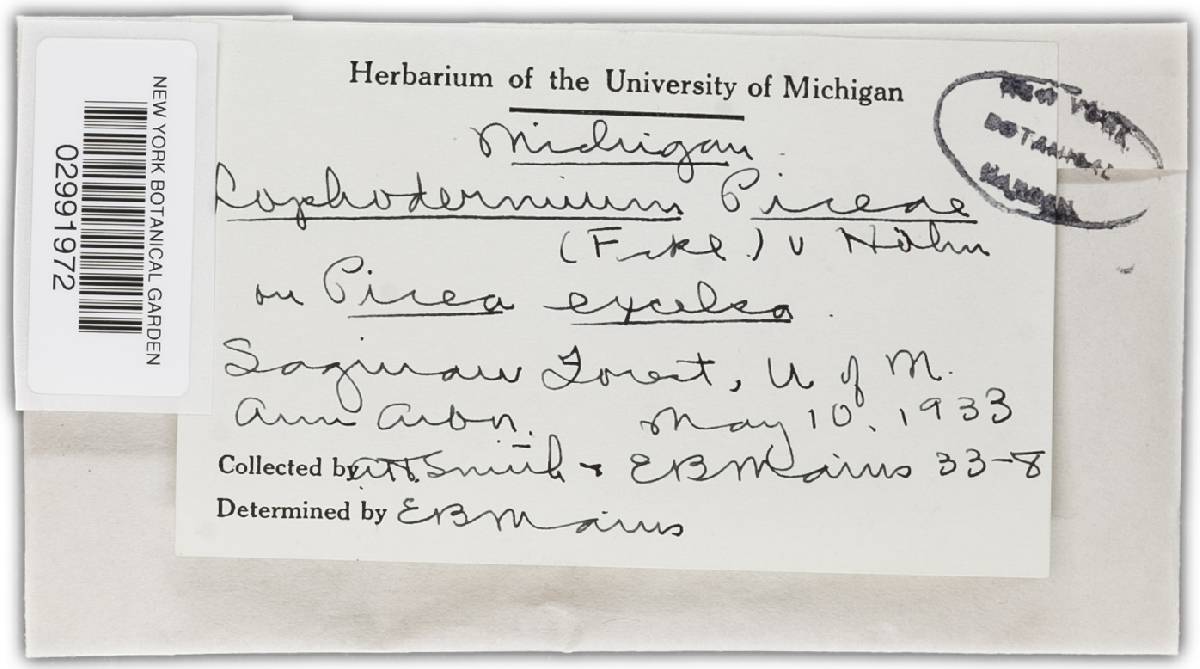 NEW YORK BOTANICAL GARDEN
02991972
Herbarium of the University of Michigan
NEW YORK
BOTANICAL
GARDEN
Michigan
Lophodermium Piceae
(Fckl.) v Höhn
on Picea excelsa.
Saginaw Forest, U of M.
Ann Arbor. May 10, 1933
Collected by AH Smith & EB Mains 33-8
Determined by EB Mains